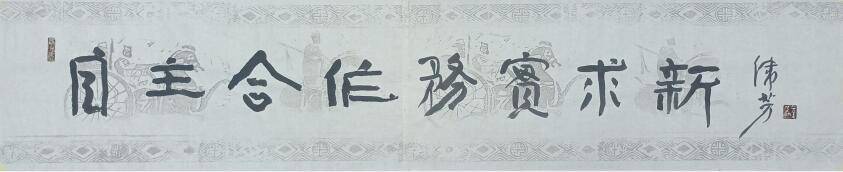 自主合作務實求新